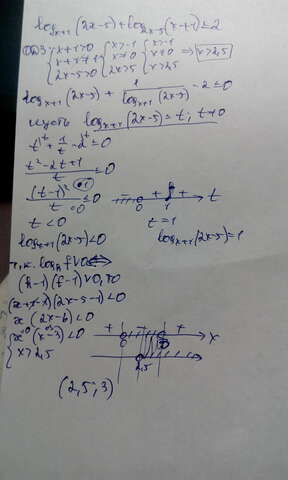 log x+1 (2x-5) + log 2x-5 (x+1) ≤ 2
ОДЗ { x+1>0 { x>-1 { x>-1
x+1≠1 x≠0 x≠0 => x>2,5
2x-5>0 2x>5 x>2,5
log x+1 (2x-5) + 1/log x+1 (2x-5) - 2 ≤ 0
пусть log x+1 (2x-5) = t, t≠0
t + 1/t - 2 ≤ 0
t²-2t+1 / t ≤ 0
(t-1)² / t ≤ 0
- + + t
0 1
t<0 t=1
log x+1 (2x-5) < 0 log x+1 (2x-5) = 1
т.к. log h f V 0 <=>
(h-1)(f-1) V 0, то
(x+1-1)(2x-5-1) < 0
x (2x-6) < 0
{ x (x-3) < 0 + - + x
x > 2,5 0 3
2,5
(2,5; 3)